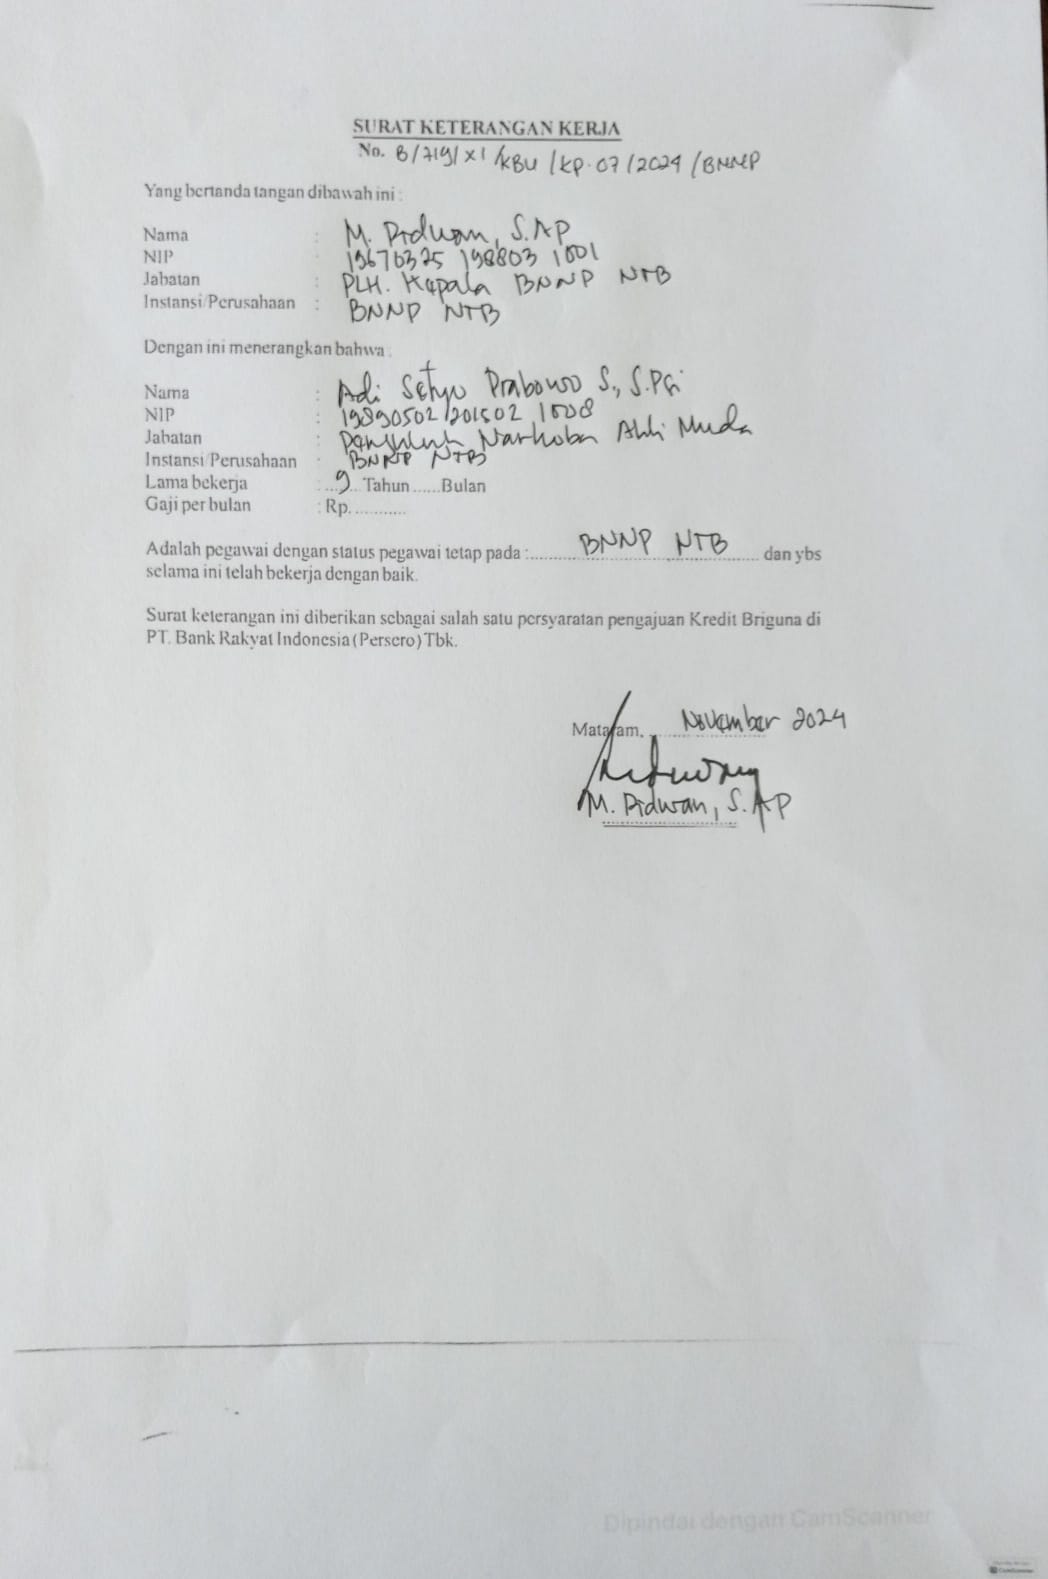 SURAT KETERANGAN KERJA
No. B/719/XI/KBU/KP.07/2024/BNNP
Yang bertanda tangan dibawah ini :
Nama : M. Ridwan, S.AP
NIP : 19670325 198803 1001
Jabatan : PLH. Kepala BNNP NTB
Instansi/Perusahaan : BNNP NTB
Dengan ini menerangkan bahwa :
Nama : Adi Setyo Prabowo S., S.Psi
NIP : 19890502 201502 1008
Jabatan : Penyuluh Narkoba Ahli Muda
Instansi/Perusahaan : BNNP NTB
Lama bekerja : ...9... Tahun ......Bulan
Gaji per bulan : Rp............
Adalah pegawai dengan status pegawai tetap pada :........BNNP NTB........ dan ybs
selama ini telah bekerja dengan baik.
Surat keterangan ini diberikan sebagai salah satu persyaratan pengajuan Kredit Briguna di
PT. Bank Rakyat Indonesia (Persero) Tbk.
Mataram, November 2024
M. Ridwan, S.AP
Dipindai dengan CamScanner